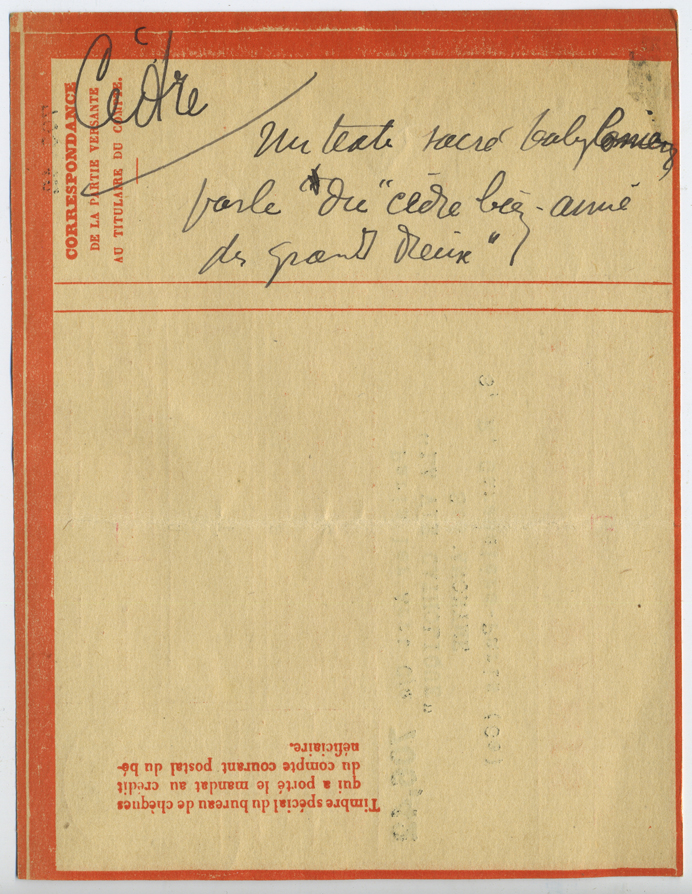 Cèdre
CORRESPONDANCE
DE LA PARTIE VERSANTE
AU TITULAIRE DU COMPTE.
Un texte sacré babylonien
parle "du "cèdre bien-aimé
des grands Dieux"
Timbre spécial du bureau de chèques
qui a porté le mandat au crédit
du compte courant postal du bé-
néficiaire.